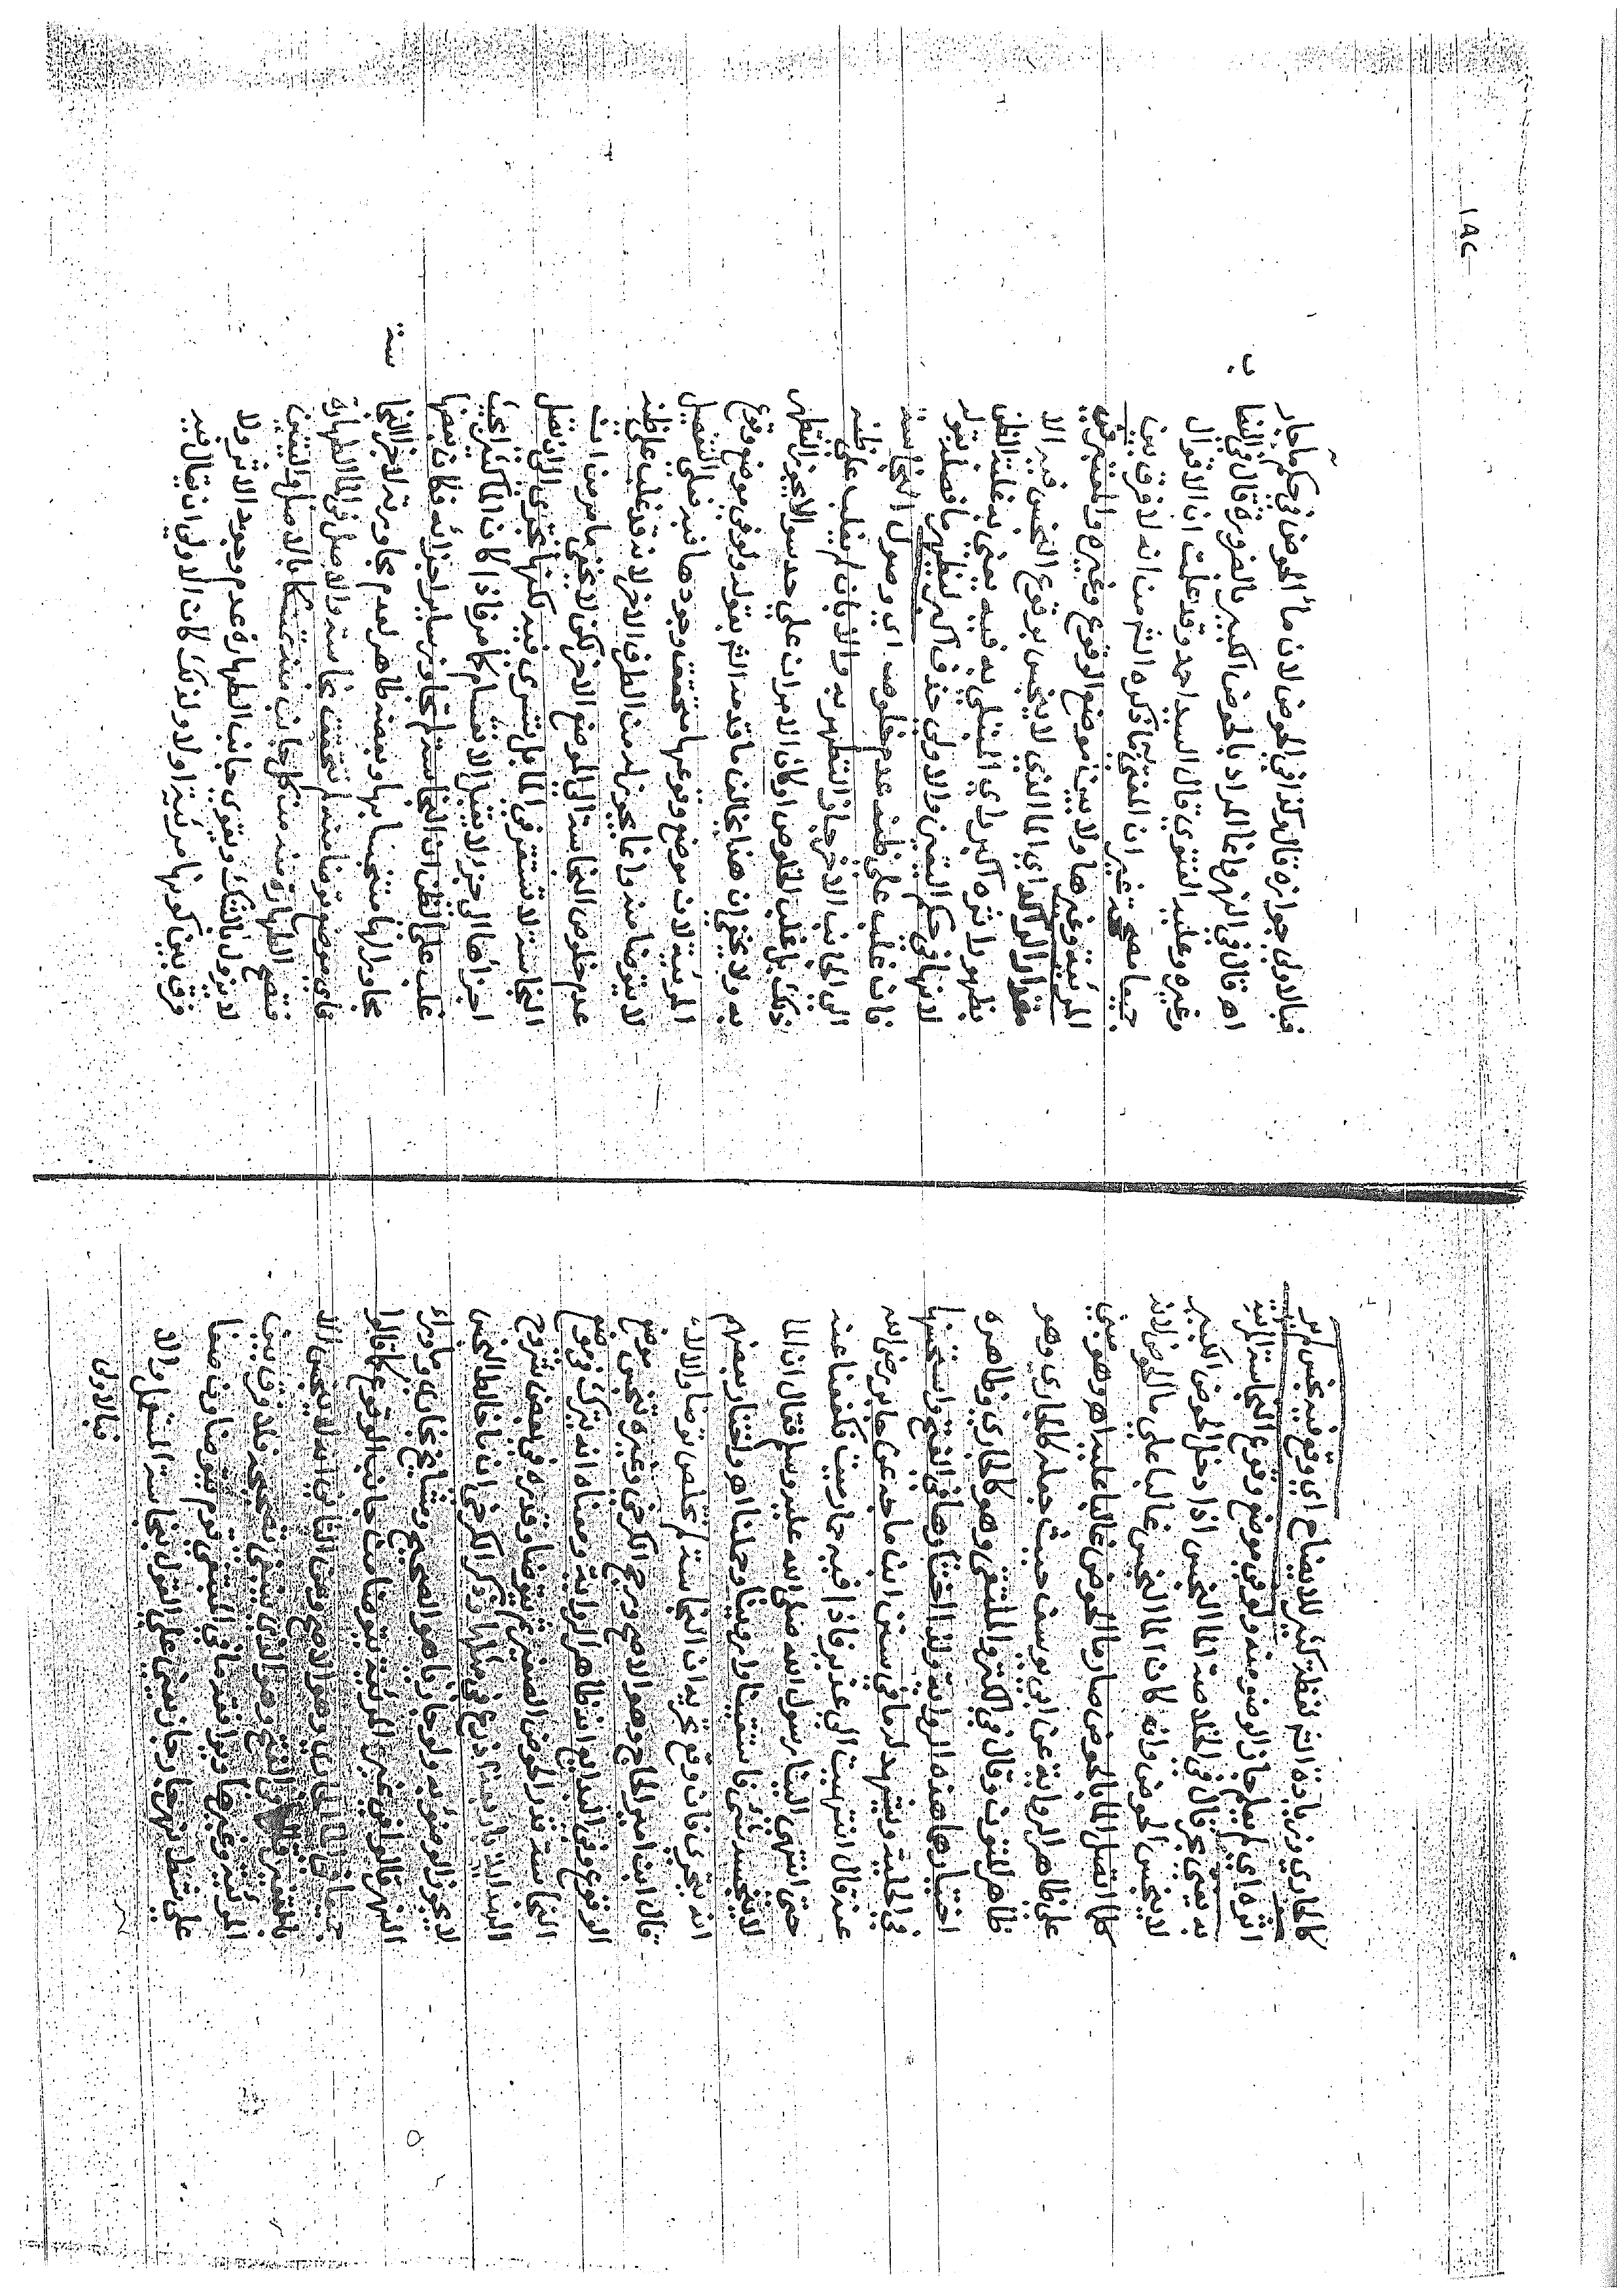 كالجاري وزيادة الشم لفظة كثير للايضاح اي وقع فيه نجس لم ير
اثره اي لم يعلم جاز الوضوء منه ولو في موضع وقوع النجاسة المرئية
به يفتي بحر قال في الخلاصة الماء النجس اذا دخل الحوض الكبير
لا ينجس الحوض وان كان الماء النجس غالبا على ماء الحوض لانه
كلما اتصل الماء بالحوض صار ماء الحوض غالبا عليه اهـ وهو مبني
على ظاهر الرواية عن ابي يوسف حيث جعله كالجاري وهو
ظاهر المتون وقال في الكنز والملتقى وهو كالجاري وظاهره
اختيار هذه الرواية ولذا اختارها في الفتح واستحسنها
في الحلية ويشهد له ما في سنن ابن ماجه عن جابر رضي الله
عنه قال انتهيت الى غدير فاذا فيه حمار ميت فكففنا عنه
حتى انتهى الينا رسول الله صلى الله عليه وسلم فقال ان الما
لا ينجسه شئ فاستقينا واروينا وحملنا اهـ واختار بعضهم
انه يتحرى فان وقع تحريه ان النجاسة لم تخلص توضا والا لا
قال ابن امير الحاج وهو الاصح ورجح الكرخي وغيره تنجس موضع
الوقوع وفي البدايع انه ظاهر الرواية ومعناه انه يترك من موضع
النجاسة قدر الحوض الصغير ثم يتوضا وقدره في بعض شروح
الهداية باربعة اذرع في مثلها وذكر الكرخي ان ما خالط النجس
لا يجوز الوضوء به ولو جاريا هو الصحيح ومشايخ بخارى وما وراء
النهر قالوا في غير المرئية يتوضا من جانب الوقوع كما قالوا
جميعا في الماء الجاري وهو الاصح وعن الثاني انه لا ينجس الا
بالتغير قال في الفتح وهو الذي ينبغي تصحيحه فلا فرق بين
المرئية وغيرها ويوافقه ما في المبتغى قوم يتوضاون صفا
على شط نهر جاز يبني على القول بنجاسة المستعمل والا
فبالاولى
١٨٢
فبالاولى جوازه قالوكذا في الحوض لان ماء الحوض في حكم ما جار
اهـ قال في النهر وانما المراد بالحوض الكبير بالضرورة قال في النها
وغيره وعليه الفتوى قال السيد احمد وقد علمت ان الاقوال
جميعا مصححة غير ان المفتى به ما ذكره الشم من انه لا فرق بين
المرئية وغيرها ولا بين موضع الوقوع وغيره والمعتبر في
مقدار الراكد اي الماء الذي لا ينجس بوقوع النجس فيه الا
بظهور اثره اكبر راي المبتلى به فيه يعني به غلبة الظن
لانها في حكم اليقين والاولى حذف اكبر ليظهر ما فصله بقوله
فان غلب على ظنه عدم خلوصه اي وصول النجاسة
الى الجانب الاخر جاز التطهر به والا بان لم يغلب على ظنه
ذلك بل غلب الخلوص او كان الامران على حد سوا لا يجوز التطهر
به ولا يخفى ان هذا يخالف ما قدمه الشم بقوله ولو في موضع وقوع
المرئية لان موضع وقوعها متحقق وجودها فيه فعلى التفصيل
لا يتوضا منه وانما يجوز له من الطرف الاخر لانه قد غلب على ظنه
عدم خلوص النجاسة الى الموضع الاخر لكن لا يخفى ما مر من ان
النجاسة لا تستقر في الما بل تسري فيه لكنها تتجزى الى ان تصل
اجزاها الى جزء لا يقبل الانقسام كما مر فاذا كان الما كثيرا بحيث
غلب على الظن ان النجاسة لم تجاوز ساير اجزائه فكان بعضها
مجاورا لها متنجسا بها وبعضه طاهر لعدم مجاورته لاجزا النجا
سة
فاي موضع توضا منه لم يتحقق نجاسته والاصل في الما الطهارة
فتصح الطهارة منه من كل جانب منه تمسكا بالاصل واليقين
لا يزول بالشك ويقوى جانب الطهارة عدم وجود الاثر ولا
فرق بين كونها مرئية اولا ولذلك كان الاولى ان يقال فيه